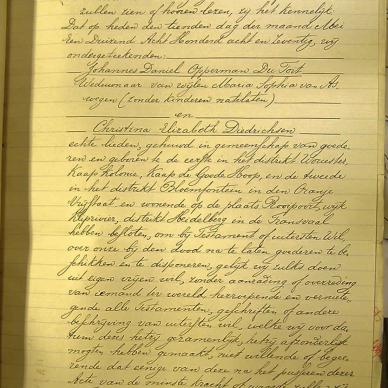 zullen zien of hooren lezen, zij het kennelijk
Dat op heden den tienden dag der maand Mei
Een Duizend Acht Honderd acht en Zeventig, wij
ondergeteekenden:
Johannes Daniel Opperman Du Toit
Weduwnaar van wijlen Maria Sophia van As-
wegen (zonder kinderen natelaten)
en
Christina Elizabeth Diedrichsen
echte lieden, gehuwd in gemeenschap van goede-
ren en geboren te de eerste in het distrikt Worcester,
Kaap Kolonie, Kaap de Goede Hoop, en de tweede
in het distrikt Bloemfontein in den Oranje
Vrijstaat en wonende op de plaats Rooipoort, wijk
Kliprivier, distrikt Heidelberg in de Transvaal
hebben besloten, om bij Testament of uitersten Wil,
over onze bij den dood na te laten goederen te be-
schikken en te disponeren, gelijk wij zulks doen
uit eigen vrijen wil, zonder aanrading of overreding
van iemand ter wereld, herroepende en vernieti-
gende alle Testamenten, geschriften of andere
beschrijving van uitersten wil, welke wij voor da-
tum dezes hetzij gezamenlijk, hetzij afzonderlijk
mogten hebben gemaakt, niet willende of begee-
rende dat eenige van deze na het passeren dezer
Acte van de minste kracht of waarde zullen